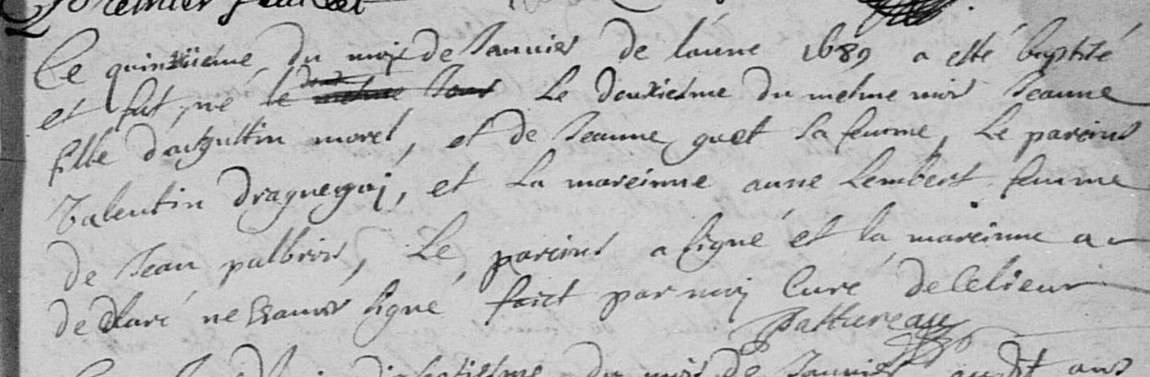 premier feullet
Ce quinziieme du mois de Janvier de lanne 1689 a esté baptisé
et fut né le mesme Jour Le deuxiesme du mesme mois Jeanne
fille d'augustin morel, et de Jeanne guet sa femme, Le parein
Valentin Draguegni, et La mareinne anne Lembert femme
de Jean palbrois, Le parein a signé et la mareinne a
declaré ne scavoir signé faict par moy Curé de celieu
Pattureau
du mois de Janvier audit ans